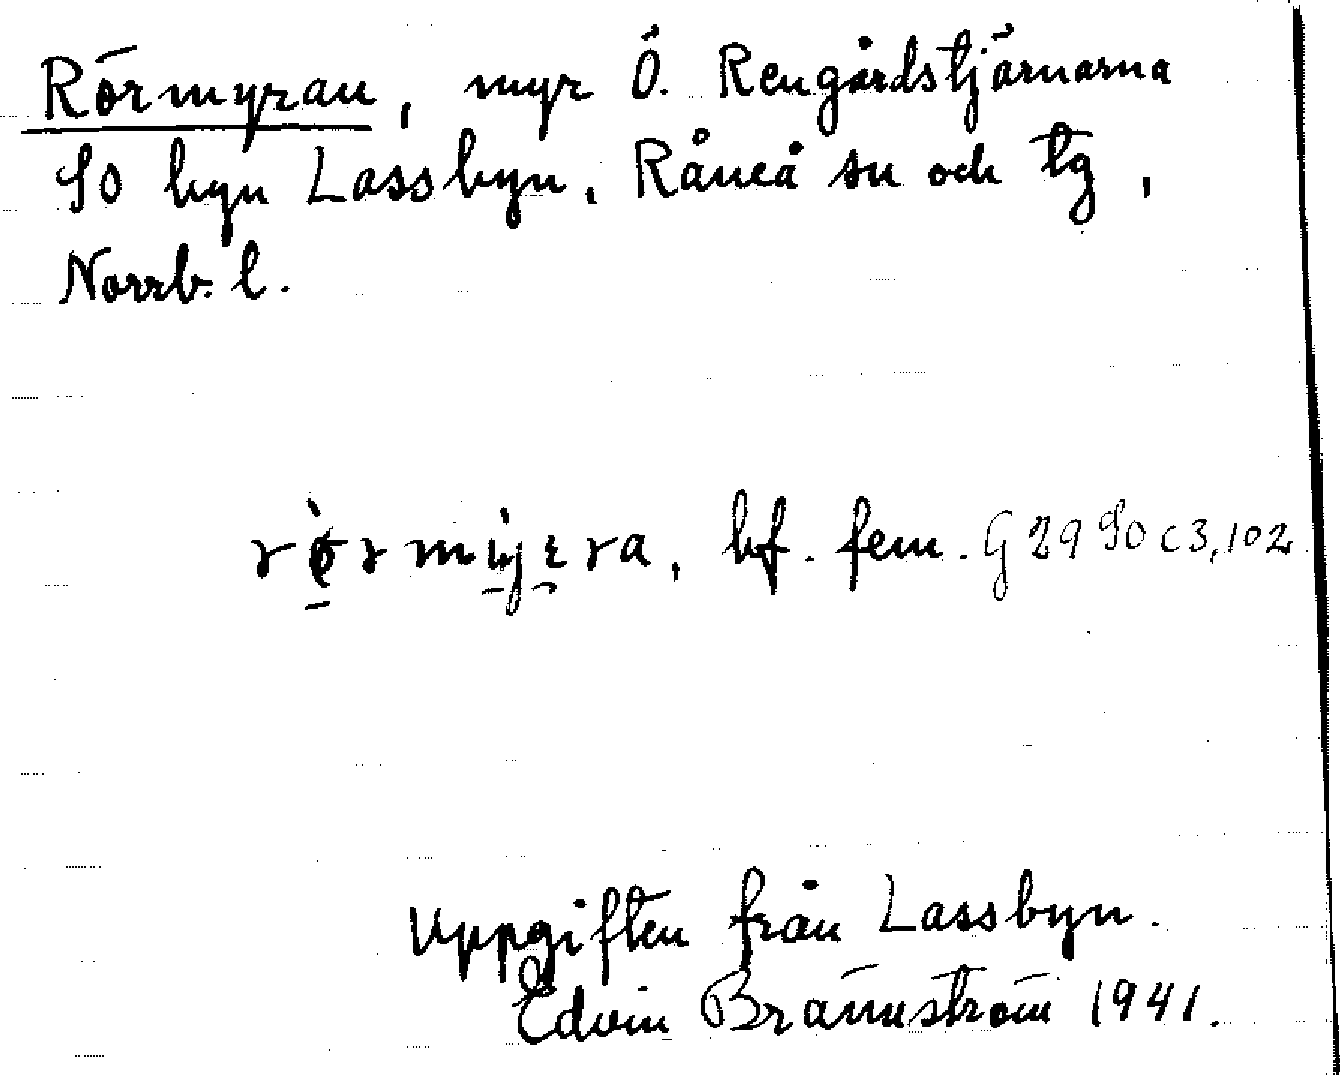 Rörmyran, myr Ö. Rengårdstjärnarna
SO byn Lassbyn, Råneå sn och tg,
Norrb. l.
bf. fem. G 29 SO c 3, 102
Uppgiften från Lassbyn.
Edvin Brännström 1941.